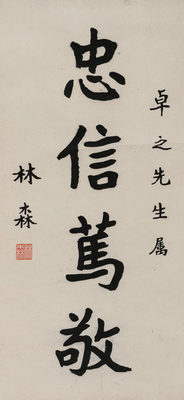 卓之先生属
忠信篤敬
林森